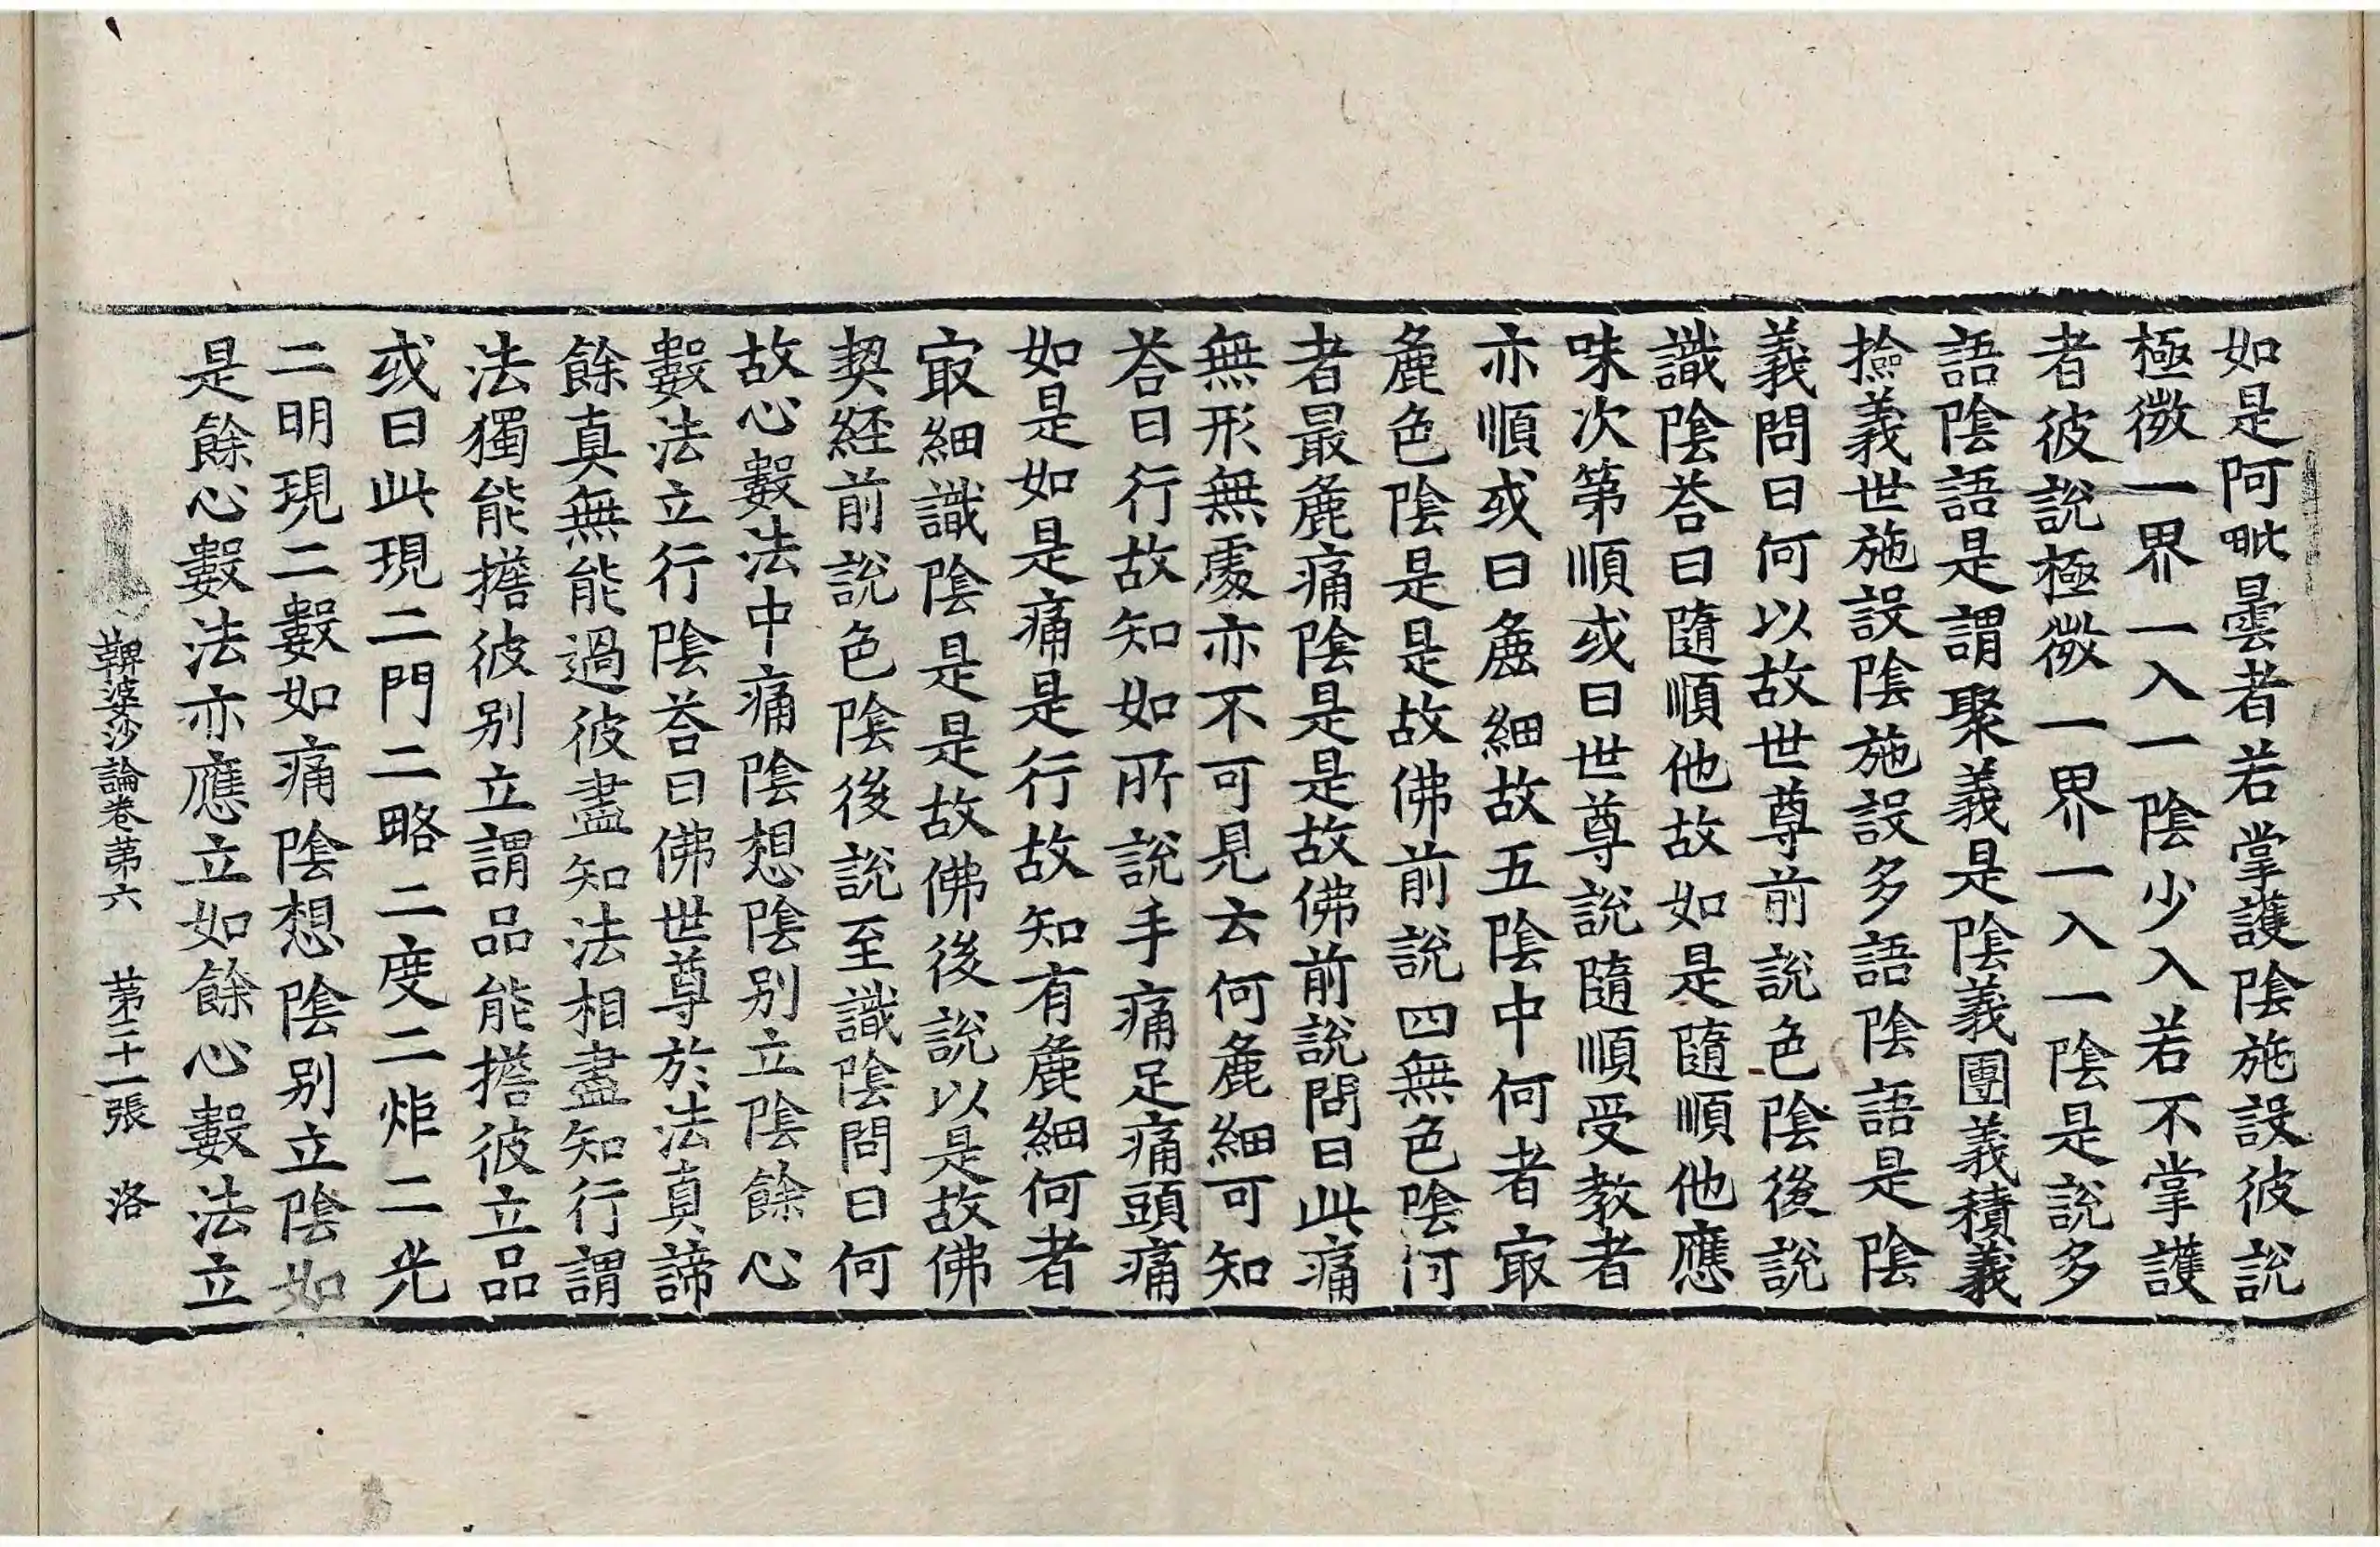 如是阿毗曇者若掌護陰施設彼說
極微一界一入一陰少入若不掌護
者彼說極微一界一入一陰是說多
語陰語是謂聚義是陰義團義積義
撿義世施設陰施設多語陰語是陰
義問曰何以故世尊前說色陰後說
識陰荅曰隨順他故如是隨順他應
味次第順或曰世尊說隨順受教者
亦順或曰麁細故五陰中何者㝡
麁色陰是是故佛前說四無色陰何
者最麁痛陰是是故佛前說問曰此痛
無形無處亦不可見云何麁細可知
荅曰行故知如所說手痛足痛頭痛
如是如是痛是行故知有麁細何者
㝡細識陰是是故佛後說以是故佛
契経前說色陰後說至識陰問曰何
故心數法中痛陰想陰別立陰餘心
數法立行陰荅曰佛世尊於法真諦
餘真無能過彼盡知法相盡知行謂
法獨能擔彼別立謂品能擔彼立品
或曰此現二門二略二度二炬二光
二明現二數如痛陰想陰別立陰如
是餘心數法亦應立如餘心數法立
鞞婆沙論卷第六　第三十一張　洛